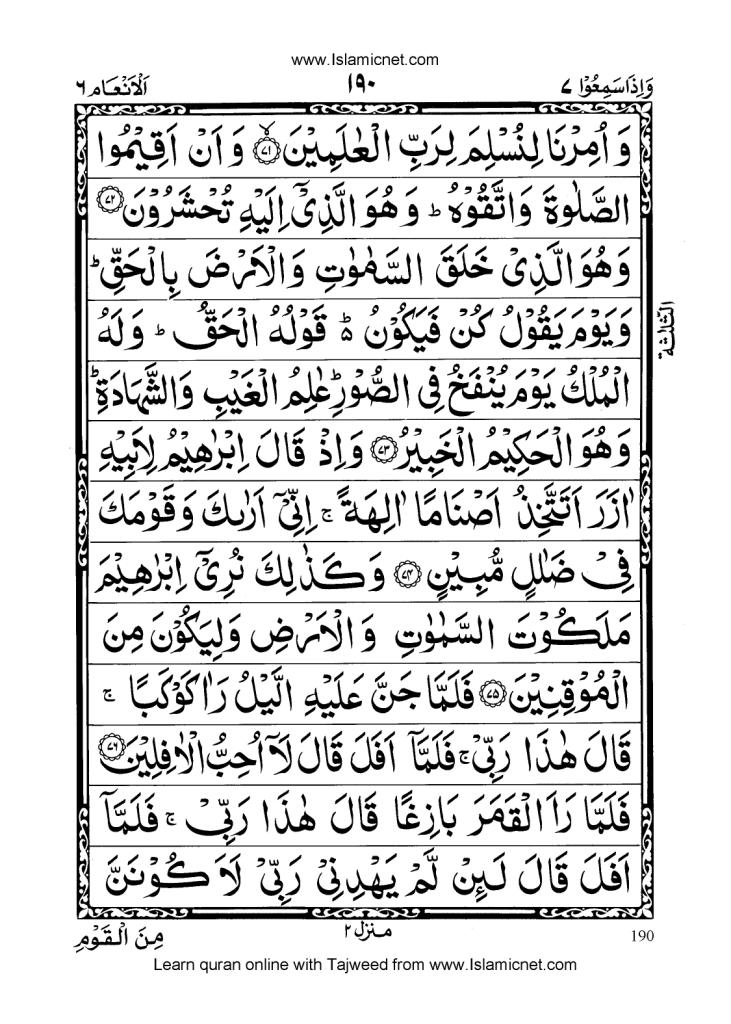 www.Islamicnet.com
وَاِذَاسَمِعُوْا ٧
١٩٠
اَلْاَنْعَام ٦
وَ اُمِرْنَا لِنُسْلِمَ لِرَبِّ الْعٰلَمِيْنَ ۙ﴿٧١﴾ وَ اَنْ اَقِيْمُوا
الصَّلٰوةَ وَاتَّقُوْهُ ؕ وَ هُوَ الَّذِىْۤ اِلَيْهِ تُحْشَرُوْنَ ﴿٧٢﴾
وَ هُوَ الَّذِىْ خَلَقَ السَّمٰوٰتِ وَ الْاَرْضَ بِالْحَقِّ ؕ
وَ يَوْمَ يَقُوْلُ كُنْ فَيَكُوْنُ ۬ؕ قَوْلُهُ الْحَقُّ ؕ وَ لَهُ
الْمُلْكُ يَوْمَ يُنْفَخُ فِى الصُّوْرِ ؕ عٰلِمُ الْغَيْبِ وَ الشَّهَادَةِ ؕ
وَ هُوَ الْحَكِيْمُ الْخَبِيْرُ ﴿٧٣﴾ وَ اِذْ قَالَ اِبْرٰهِيْمُ لِاَبِيْهِ
اٰزَرَ اَتَتَّخِذُ اَصْنَامًا اٰلِهَةً ۚ اِنِّىْۤ اَرٰىكَ وَ قَوْمَكَ
فِىْ ضَلٰلٍ مُّبِيْنٍ ﴿٧٤﴾ وَ كَذٰلِكَ نُرِىْۤ اِبْرٰهِيْمَ
مَلَكُوْتَ السَّمٰوٰتِ وَ الْاَرْضِ وَ لِيَكُوْنَ مِنَ
الْمُوْقِنِيْنَ ﴿٧٥﴾ فَلَمَّا جَنَّ عَلَيْهِ الَّيْلُ رَاٰ كَوْكَبًا ۚ
قَالَ هٰذَا رَبِّىْ ۚ فَلَمَّاۤ اَفَلَ قَالَ لَاۤ اُحِبُّ الْاٰفِلِيْنَ ﴿٧٦﴾
فَلَمَّا رَاَ الْقَمَرَ بَازِغًا قَالَ هٰذَا رَبِّىْ ۚ فَلَمَّاۤ
اَفَلَ قَالَ لَئِنْ لَّمْ يَهْدِنِىْ رَبِّىْ لَاَكُوْنَنَّ
الثلٰثة
190
منزل ٢
مِنَ الْقَوْمِ
Learn quran online with Tajweed from www.Islamicnet.com